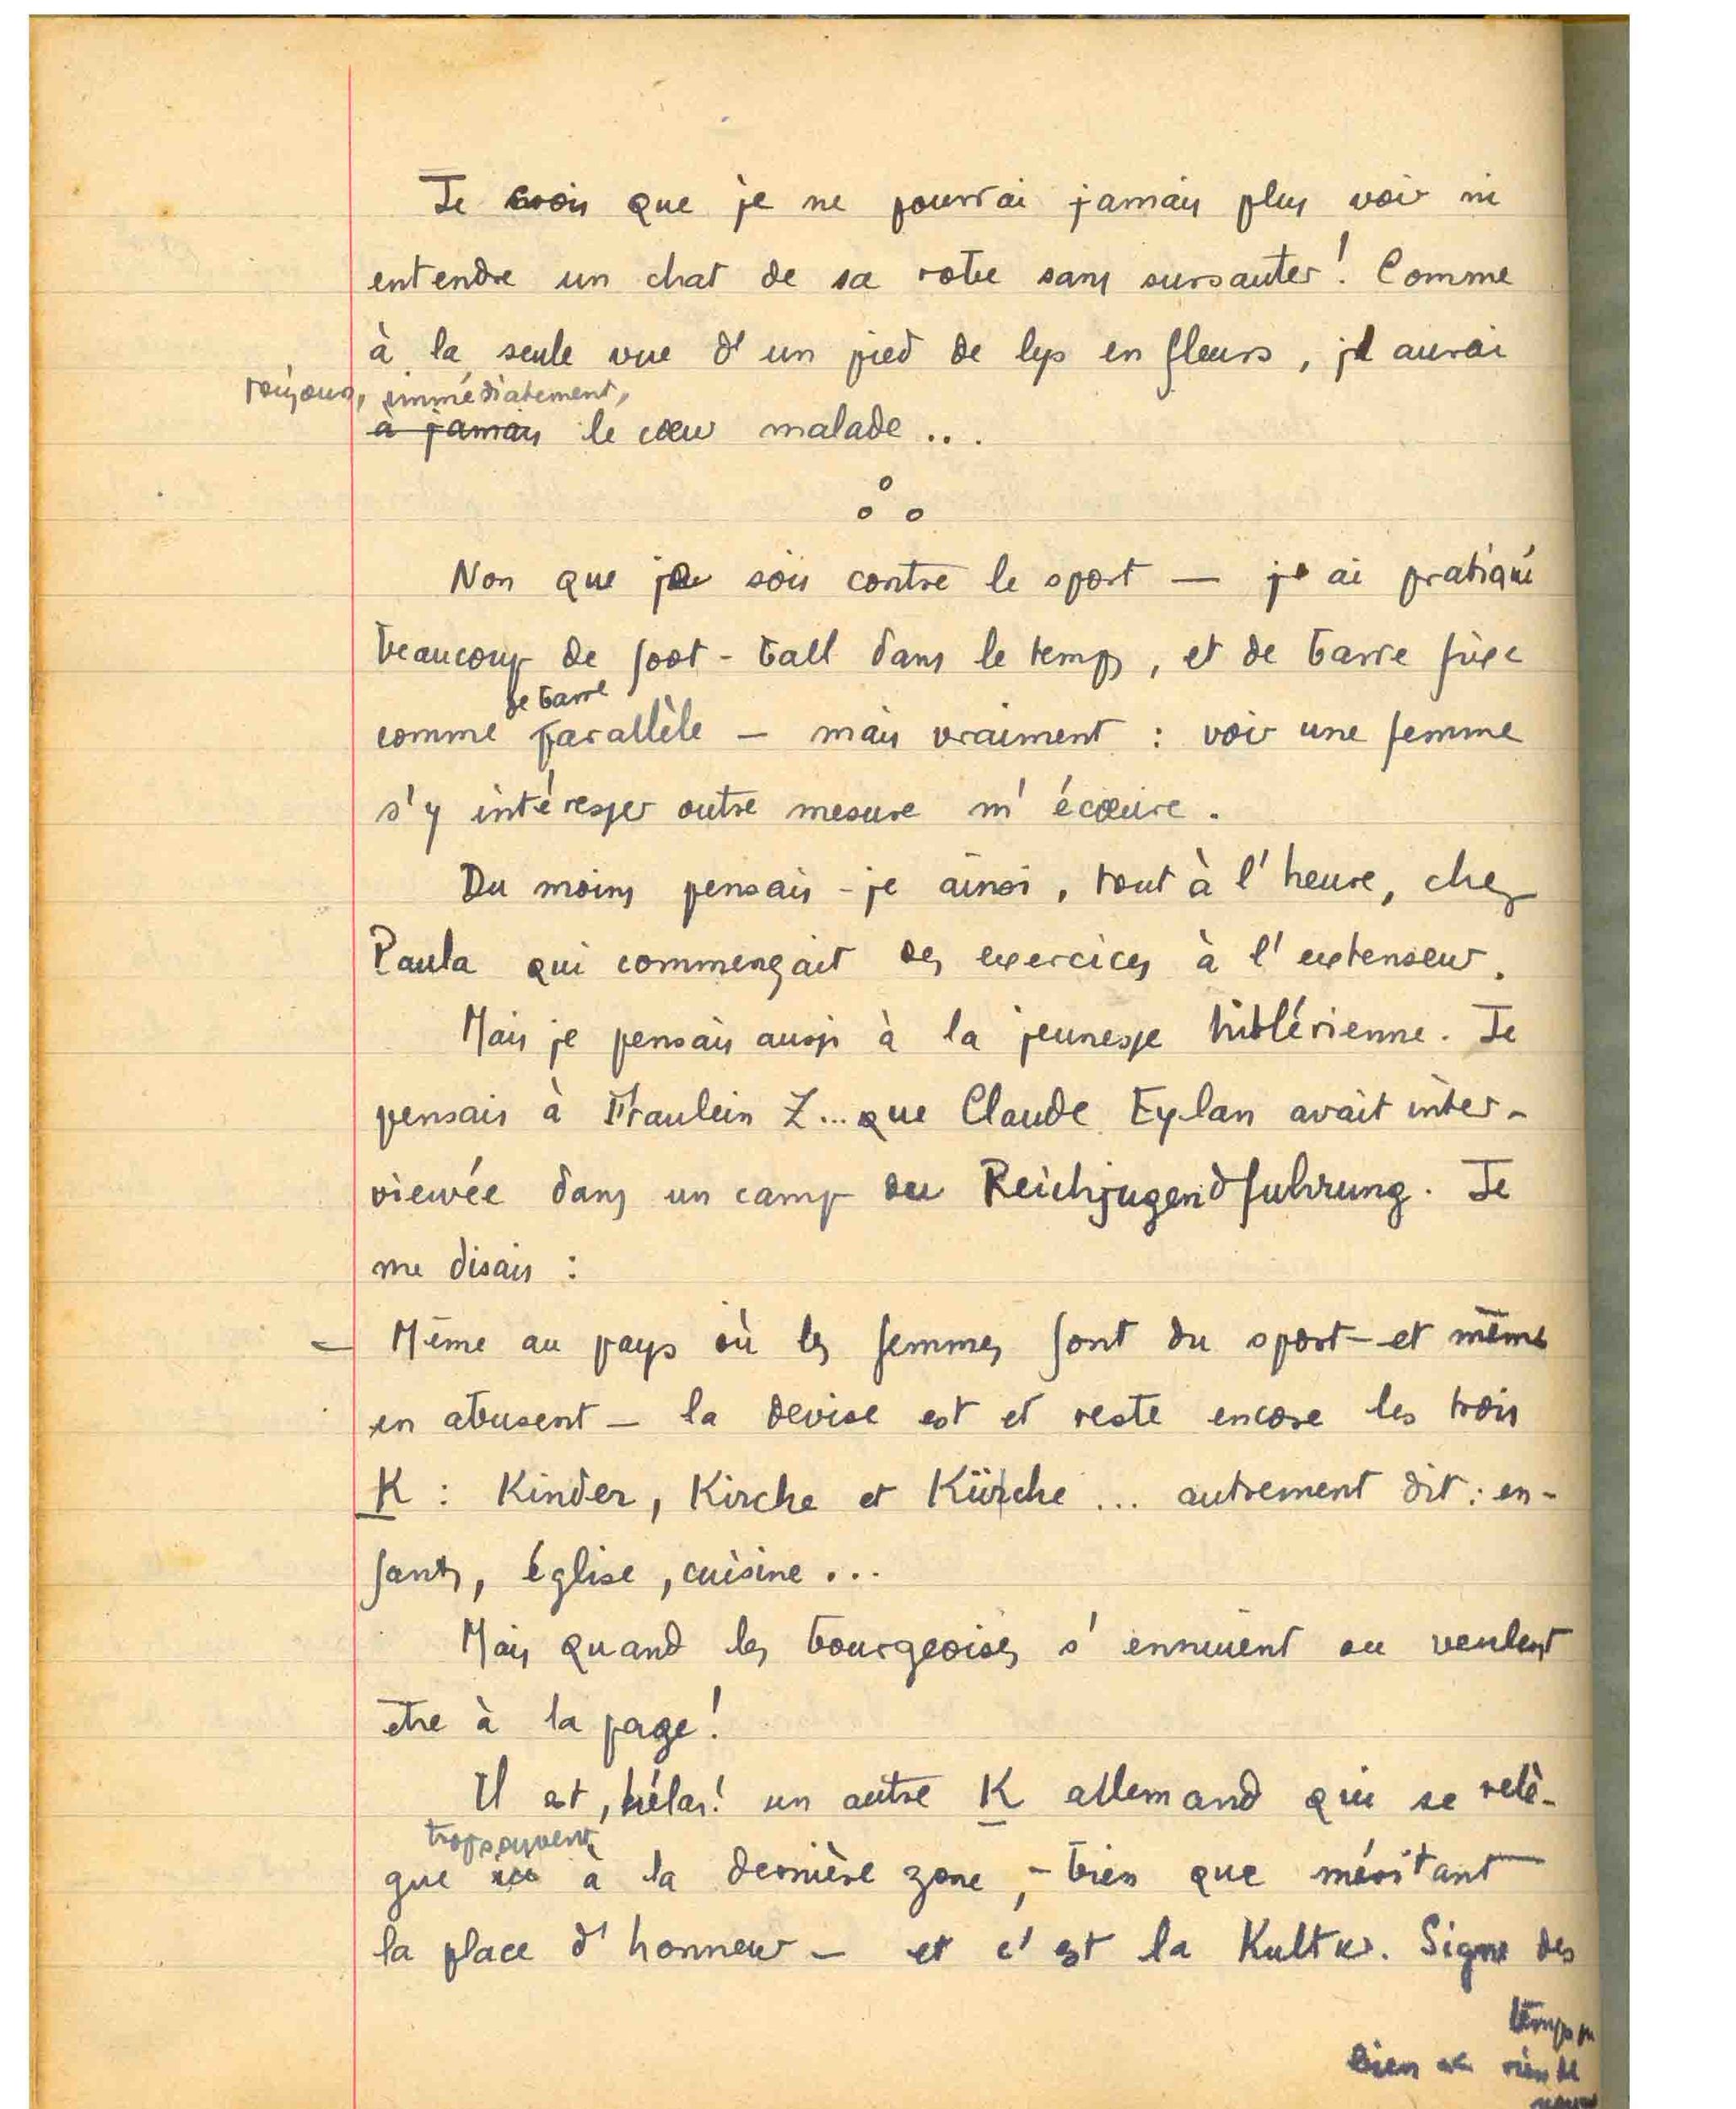 Je crois que je ne pourrai jamais plus voir ni
entendre un chat de sa robe sans sursauter! Comme
à la seule vue d'un pied de lys en fleurs, j'aurai
toujours, immédiatement,
à jamais le cœur malade...
Non que je sois contre le sport — j'ai pratiqué
beaucoup de foot-ball dans le temps, et de barre fixe
de barre
comme parallèle — mais vraiment : voir une femme
s'y intéresser outre mesure m'écœure.
Du moins pensais-je ainsi, tout à l'heure, chez
Paula qui commençait des exercices à l'extenseur.
Mais je pensais aussi à la jeunesse hitlérienne. Je
pensais à Fraulein Z... que Claude Eylan avait inter-
viewée dans un camp du Reichjugendfuhrung. Je
me disais :
— Même au pays où les femmes font du sport — et même
en abusent — la devise est et reste encore les trois
K : Kinder, Kirche et Küche ... autrement dit : en-
fants, église, cuisine ...
Mais quand les bourgeoises s'ennuient ou veulent
etre à la page!
Il est, hélas! un autre K allemand qui se relè-
trop souvent
gue à la dernière zone, — bien que méritant
la place d'honneur — et c'est la Kultur. Signe des
temps
bien rien de